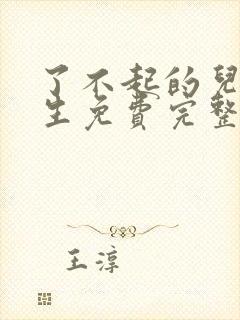 了不起的兒
生免費完整
王淳